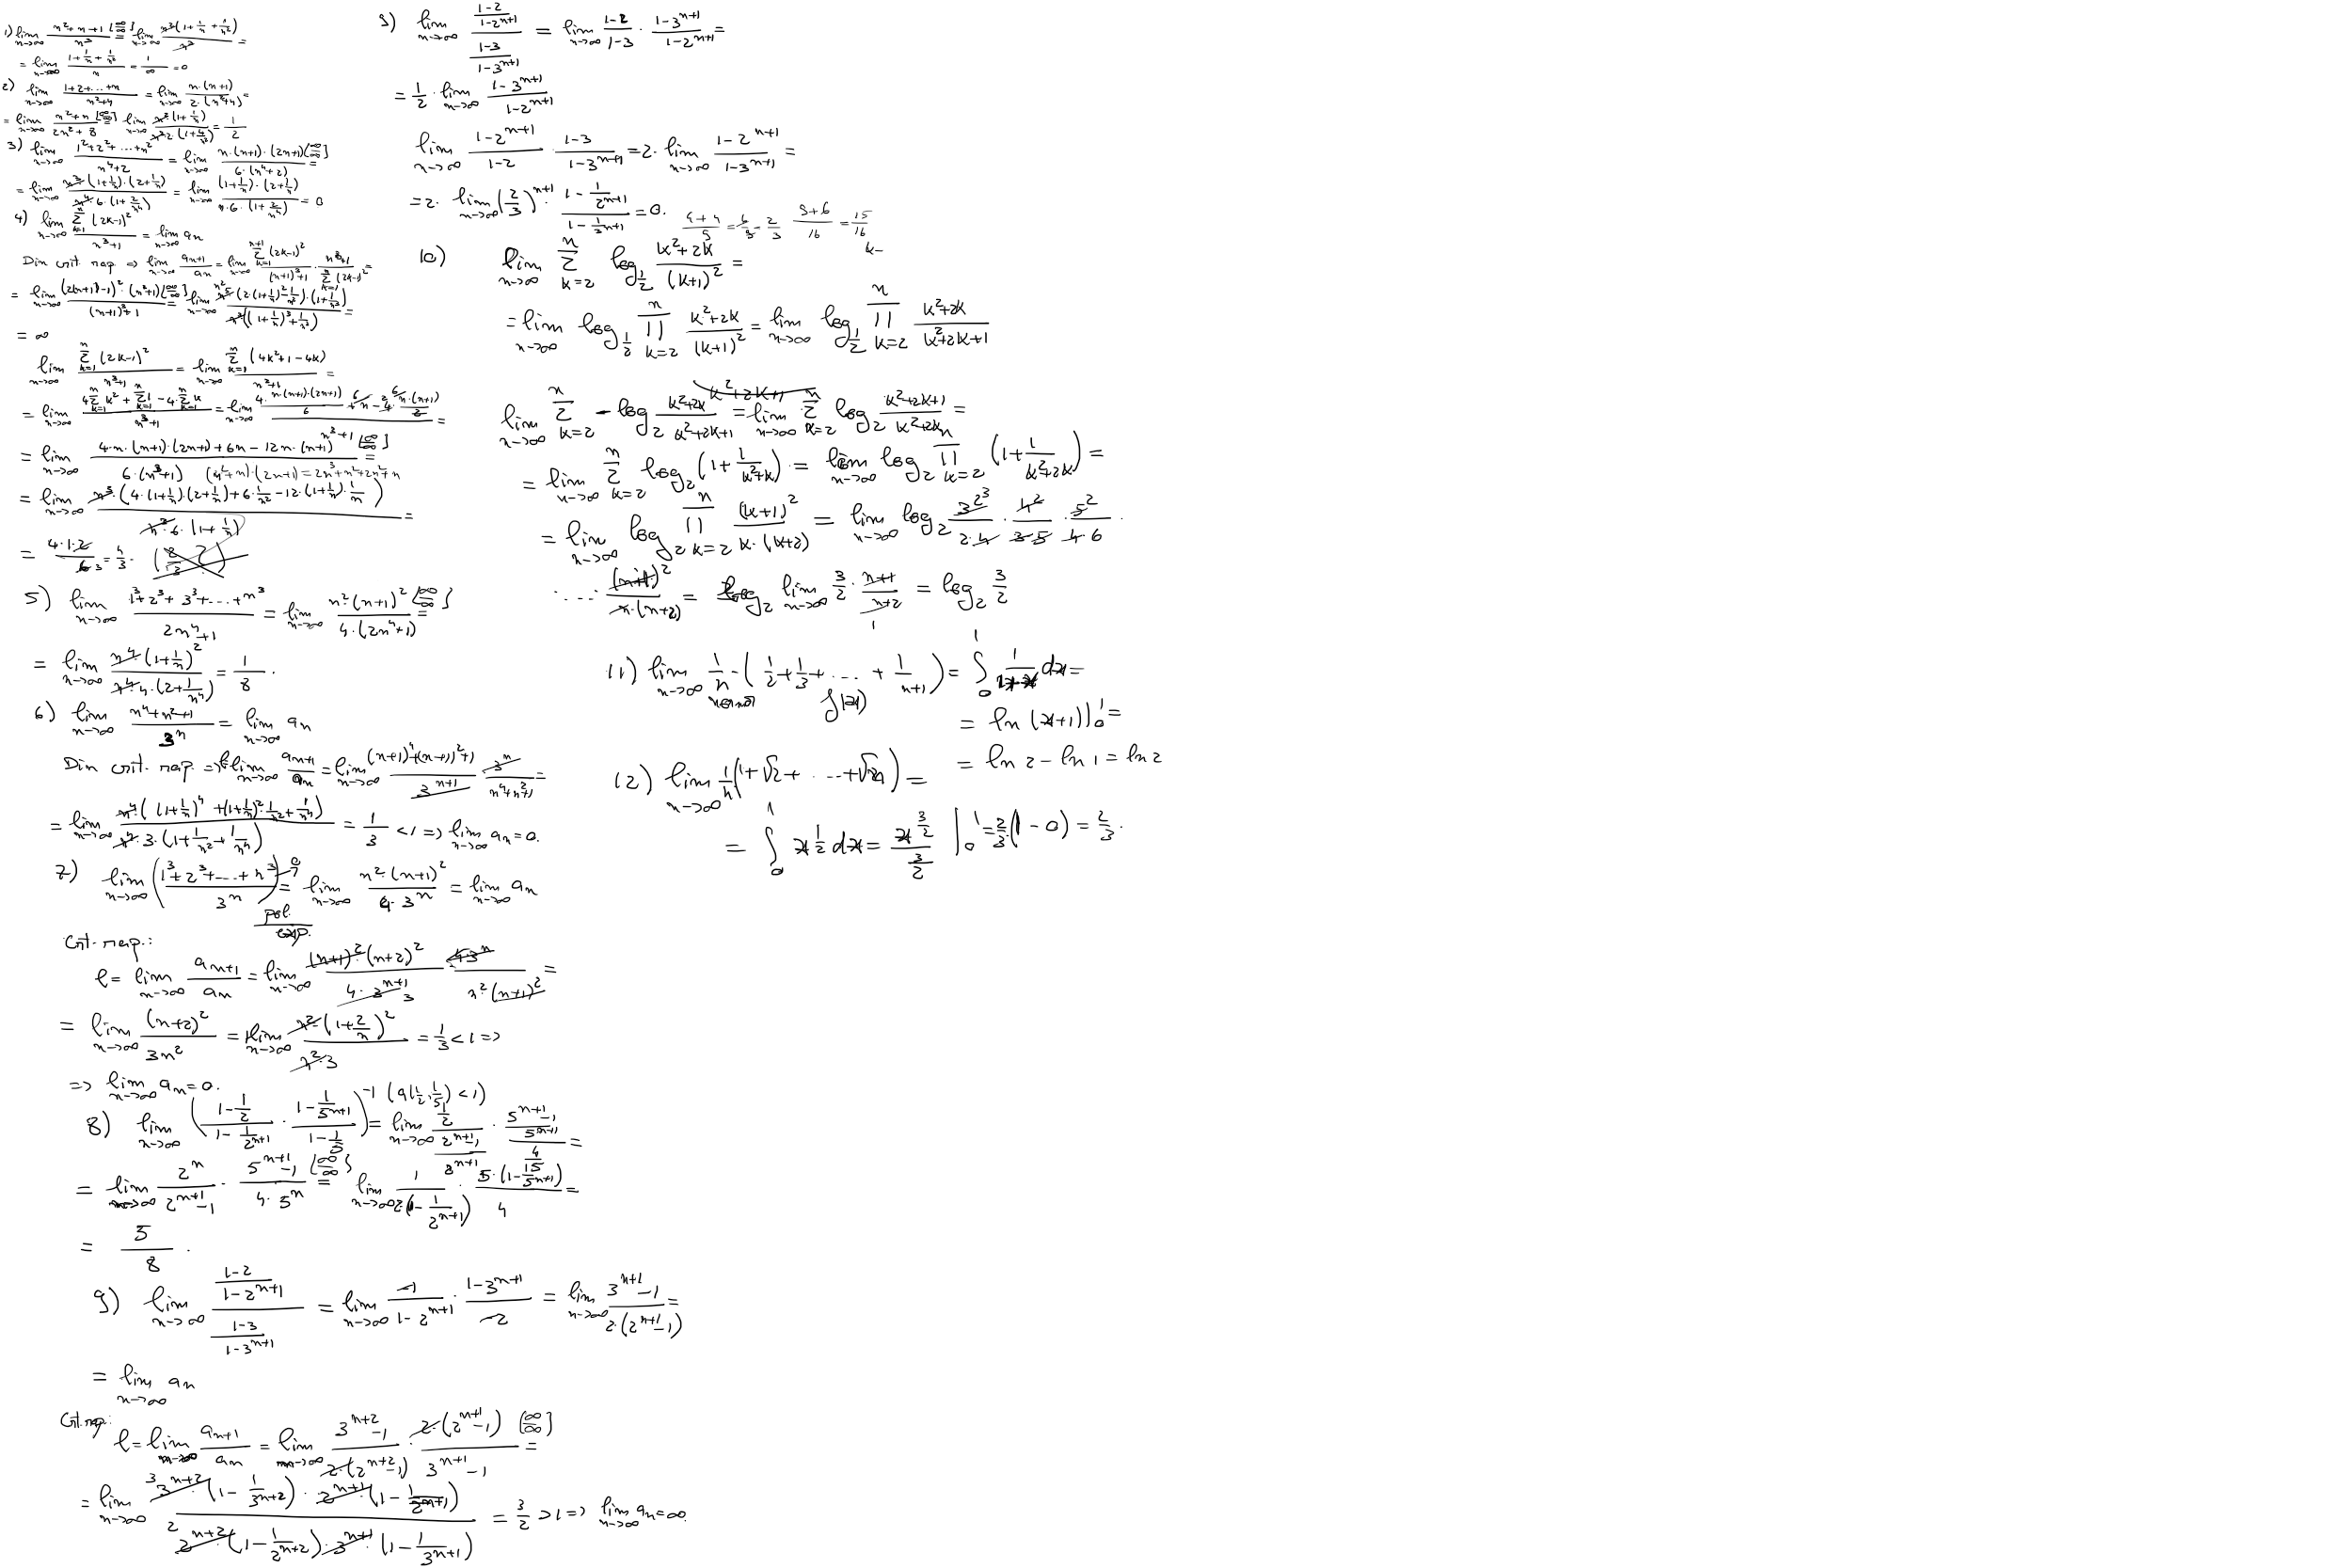 1) lim n->∞ (n²+n+1)/n³ [∞/∞] = lim n->∞ n²(1+1/n+1/n²)/n³ =
= lim n->∞ (1+1/n+1/n²)/n = 1/∞ = 0
2) lim n->∞ (1+2+...+n)/(n²+4) = lim n->∞ n·(n+1)/(2·(n²+4)) =
= lim n->∞ (n²+n)/(2n²+8) [∞/∞] = lim n->∞ n²(1+1/n)/(n²·2(1+4/n²)) = 1/2
3) lim n->∞ (1²+2²+...+n²)/(n⁴+2) = lim n->∞ n·(n+1)·(2n+1)/(6·(n⁴+2)) [∞/∞] =
= lim n->∞ n³·(1+1/n)·(2+1/n)/(n⁴·6·(1+2/n⁴)) = lim n->∞ (1+1/n)·(2+1/n)/(n·6·(1+2/n⁴)) = 0
4) lim n->∞ Σ k=1 n (2k-1)²/(n³+1) = lim n->∞ an
Din crit. rap. => lim n->∞ an+1/an = lim n->∞ Σ k=1 n+1 (2k-1)²/((n+1)³+1) · (n³+1)/Σ k=1 n (2k-1)² =
= lim n->∞ (2(n+1)-1)²·(n³+1)/((n+1)³+1) [∞/∞] = lim n->∞ n⁵·(2·(1+1/n)-1/n)²·(1+1/n³)/(n³((1+1/n)³+1/n³)) =
= ∞
lim n->∞ Σ k=1 n (2k-1)²/(n³+1) = lim n->∞ Σ k=1 n (4k²+1-4k)/(n³+1) =
= lim n->∞ (4Σ k=1 n k² + Σ k=1 n 1 - 4·Σ k=1 n k)/(n³+1) = lim n->∞ (4·n·(n+1)·(2n+1)/6 + n - 4·n·(n+1)/2)/(n³+1) =
= lim n->∞ (4·n·(n+1)·(2n+1)+6n-12n·(n+1))/(6·(n³+1)) [∞/∞] =
(n²+n)·(2n+1)=2n³+n²+2n²+n
= lim n->∞ n³·(4·(1+1/n)·(2+1/n)+6·1/n²-12·(1+1/n)·1/n)/(n³·6·(1+1/n)) =
= 4·1·2/6 = 4/3.
5) lim n->∞ (1³+2³+3³+...+n³)/(2n⁴+1) = lim n->∞ n²·(n+1)²/(4·(2n⁴+1)) [∞/∞] =
= lim n->∞ n⁴·(1+1/n)²/(n⁴·4·(2+1/n⁴)) = 1/8.
6) lim n->∞ (n⁴+n²+1)/3ⁿ = lim n->∞ an
Din crit. rap. => l=lim n->∞ an+1/an = lim n->∞ ((n+1)⁴+(n+1)²+1)/3ⁿ⁺¹ · 3ⁿ/(n⁴+n²+1) =
= lim n->∞ n⁴·((1+1/n)⁴+(1+1/n)²·1/n²+1/n⁴)/(n⁴·3·(1+1/n²+1/n⁴)) = 1/3 <1 => lim n->∞ an=0.
7) lim n->∞ ((1³+2³+...+n³)/3ⁿ) = lim n->∞ n²·(n+1)²/(4·3ⁿ) = lim n->∞ an
pol./exp.
Crit. rap.:
l = lim n->∞ an+1/an = lim n->∞ (n+1)²·(n+2)²/(4·3ⁿ⁺¹) · 4·3ⁿ/(n²·(n+1)²) =
= lim n->∞ (n+2)²/3n² = lim n->∞ n²·(1+2/n)²/(n²·3) = 1/3 <1 =>
=> lim n->∞ an=0.
8) lim n->∞ ((1-1/2)/(1-1/2ⁿ⁺¹) · (1-1/5ⁿ⁺¹)/(1-1/5))⁻¹ (a(1/2,1/5)<1) = lim n->∞ (1/2)/((2ⁿ⁺¹-1)/2ⁿ⁺¹) · ((5ⁿ⁺¹-1)/5ⁿ⁺¹)/(4/5) =
= lim n->∞ 2ⁿ/(2ⁿ⁺¹-1) · (5ⁿ⁺¹-1)/(4·5ⁿ) [∞/∞] = lim n->∞ 1/(2(1-1/2ⁿ⁺¹)) · 5·(1-1/5ⁿ⁺¹)/4 =
= 5/8.
9) lim n->∞ ((1-2)/(1-2ⁿ⁺¹))/((1-3)/(1-3ⁿ⁺¹)) = lim n->∞ -1/(1-2ⁿ⁺¹) · (1-3ⁿ⁺¹)/-2 = lim n->∞ (3ⁿ⁺¹-1)/(2·(2ⁿ⁺¹-1)) =
= lim n->∞ an
Crit. rap:
l = lim n->∞ an+1/an = lim n->∞ (3ⁿ⁺²-1)/(2·(2ⁿ⁺²-1)) · 2·(2ⁿ⁺¹-1)/(3ⁿ⁺¹-1) [∞/∞] =
= lim n->∞ 3ⁿ⁺²·(1-1/3ⁿ⁺²)·2ⁿ⁺¹·(1-1/2ⁿ⁺¹)/(2ⁿ⁺²·(1-1/2ⁿ⁺²)·3ⁿ⁺¹·(1-1/3ⁿ⁺¹)) = 3/2 >1 => lim n->∞ an=∞.
9) lim n->∞ ((1-2)/(1-2ⁿ⁺¹))/((1-3)/(1-3ⁿ⁺¹)) = lim n->∞ (1-2)/(1-3) · (1-3ⁿ⁺¹)/(1-2ⁿ⁺¹) =
= 1/2 · lim n->∞ (1-3ⁿ⁺¹)/(1-2ⁿ⁺¹)
lim n->∞ (1-2ⁿ⁺¹)/(1-2) · (1-3)/(1-3ⁿ⁺¹) = 2· lim n->∞ (1-2ⁿ⁺¹)/(1-3ⁿ⁺¹) =
= 2· lim n->∞ (2/3)ⁿ⁺¹ · (1-1/2ⁿ⁺¹)/(1-1/3ⁿ⁺¹) = 0.
(9+6)/16 = 15/16
10) lim n->∞ Σ k=2 n log1/2 (k²+2k)/(k+1)² =
= lim n->∞ log1/2 Π k=2 n (k²+2k)/(k+1)² = lim n->∞ log1/2 Π k=2 n (k²+2k)/(k²+2k+1)
lim n->∞ Σ k=2 n -log2 (k²+2k)/(k²+2k+1) = lim n->∞ Σ k=2 n log2 (k²+2k+1)/(k²+2k) =
= lim n->∞ Σ k=2 n log2 (1+1/(k²+k)) = lim n->∞ log2 Π k=2 n (1+1/(k²+2k)) =
= lim n->∞ log2 Π k=2 n (k+1)²/(k·(k+2)) = lim n->∞ log2 3²/(2·4) · 4²/(3·5) · 5²/(4·6) ·
....· (n+1)²/(n·(n+2)) = log2 lim n->∞ 3/2 · (n+1)/(n+2) = log2 3/2
11) lim n->∞ 1/n·(1/2+1/3+...+1/(n+1)) = ∫₀¹ 1/(1+x) dx =
f(x)
= ln(x+1)|₀¹ =
= ln 2 - ln 1 = ln 2
12) lim n->∞ 1/n(1+√2+...+√n) =
= ∫₀¹ x^(1/2) dx = x^(3/2)/(3/2) |₀¹ = 2/3·(1-0) = 2/3.